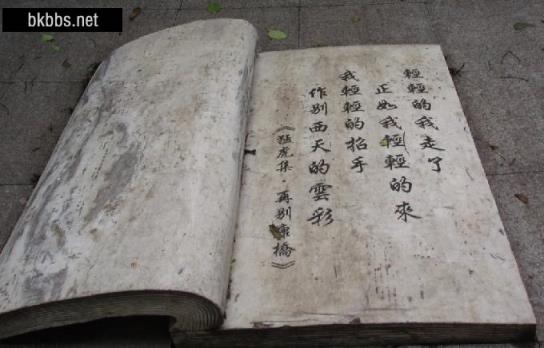 bkbbs.net
輕輕的我走了
正如我輕輕的來
我輕輕的招手
作別西天的雲彩
《猛虎集·再別康橋》